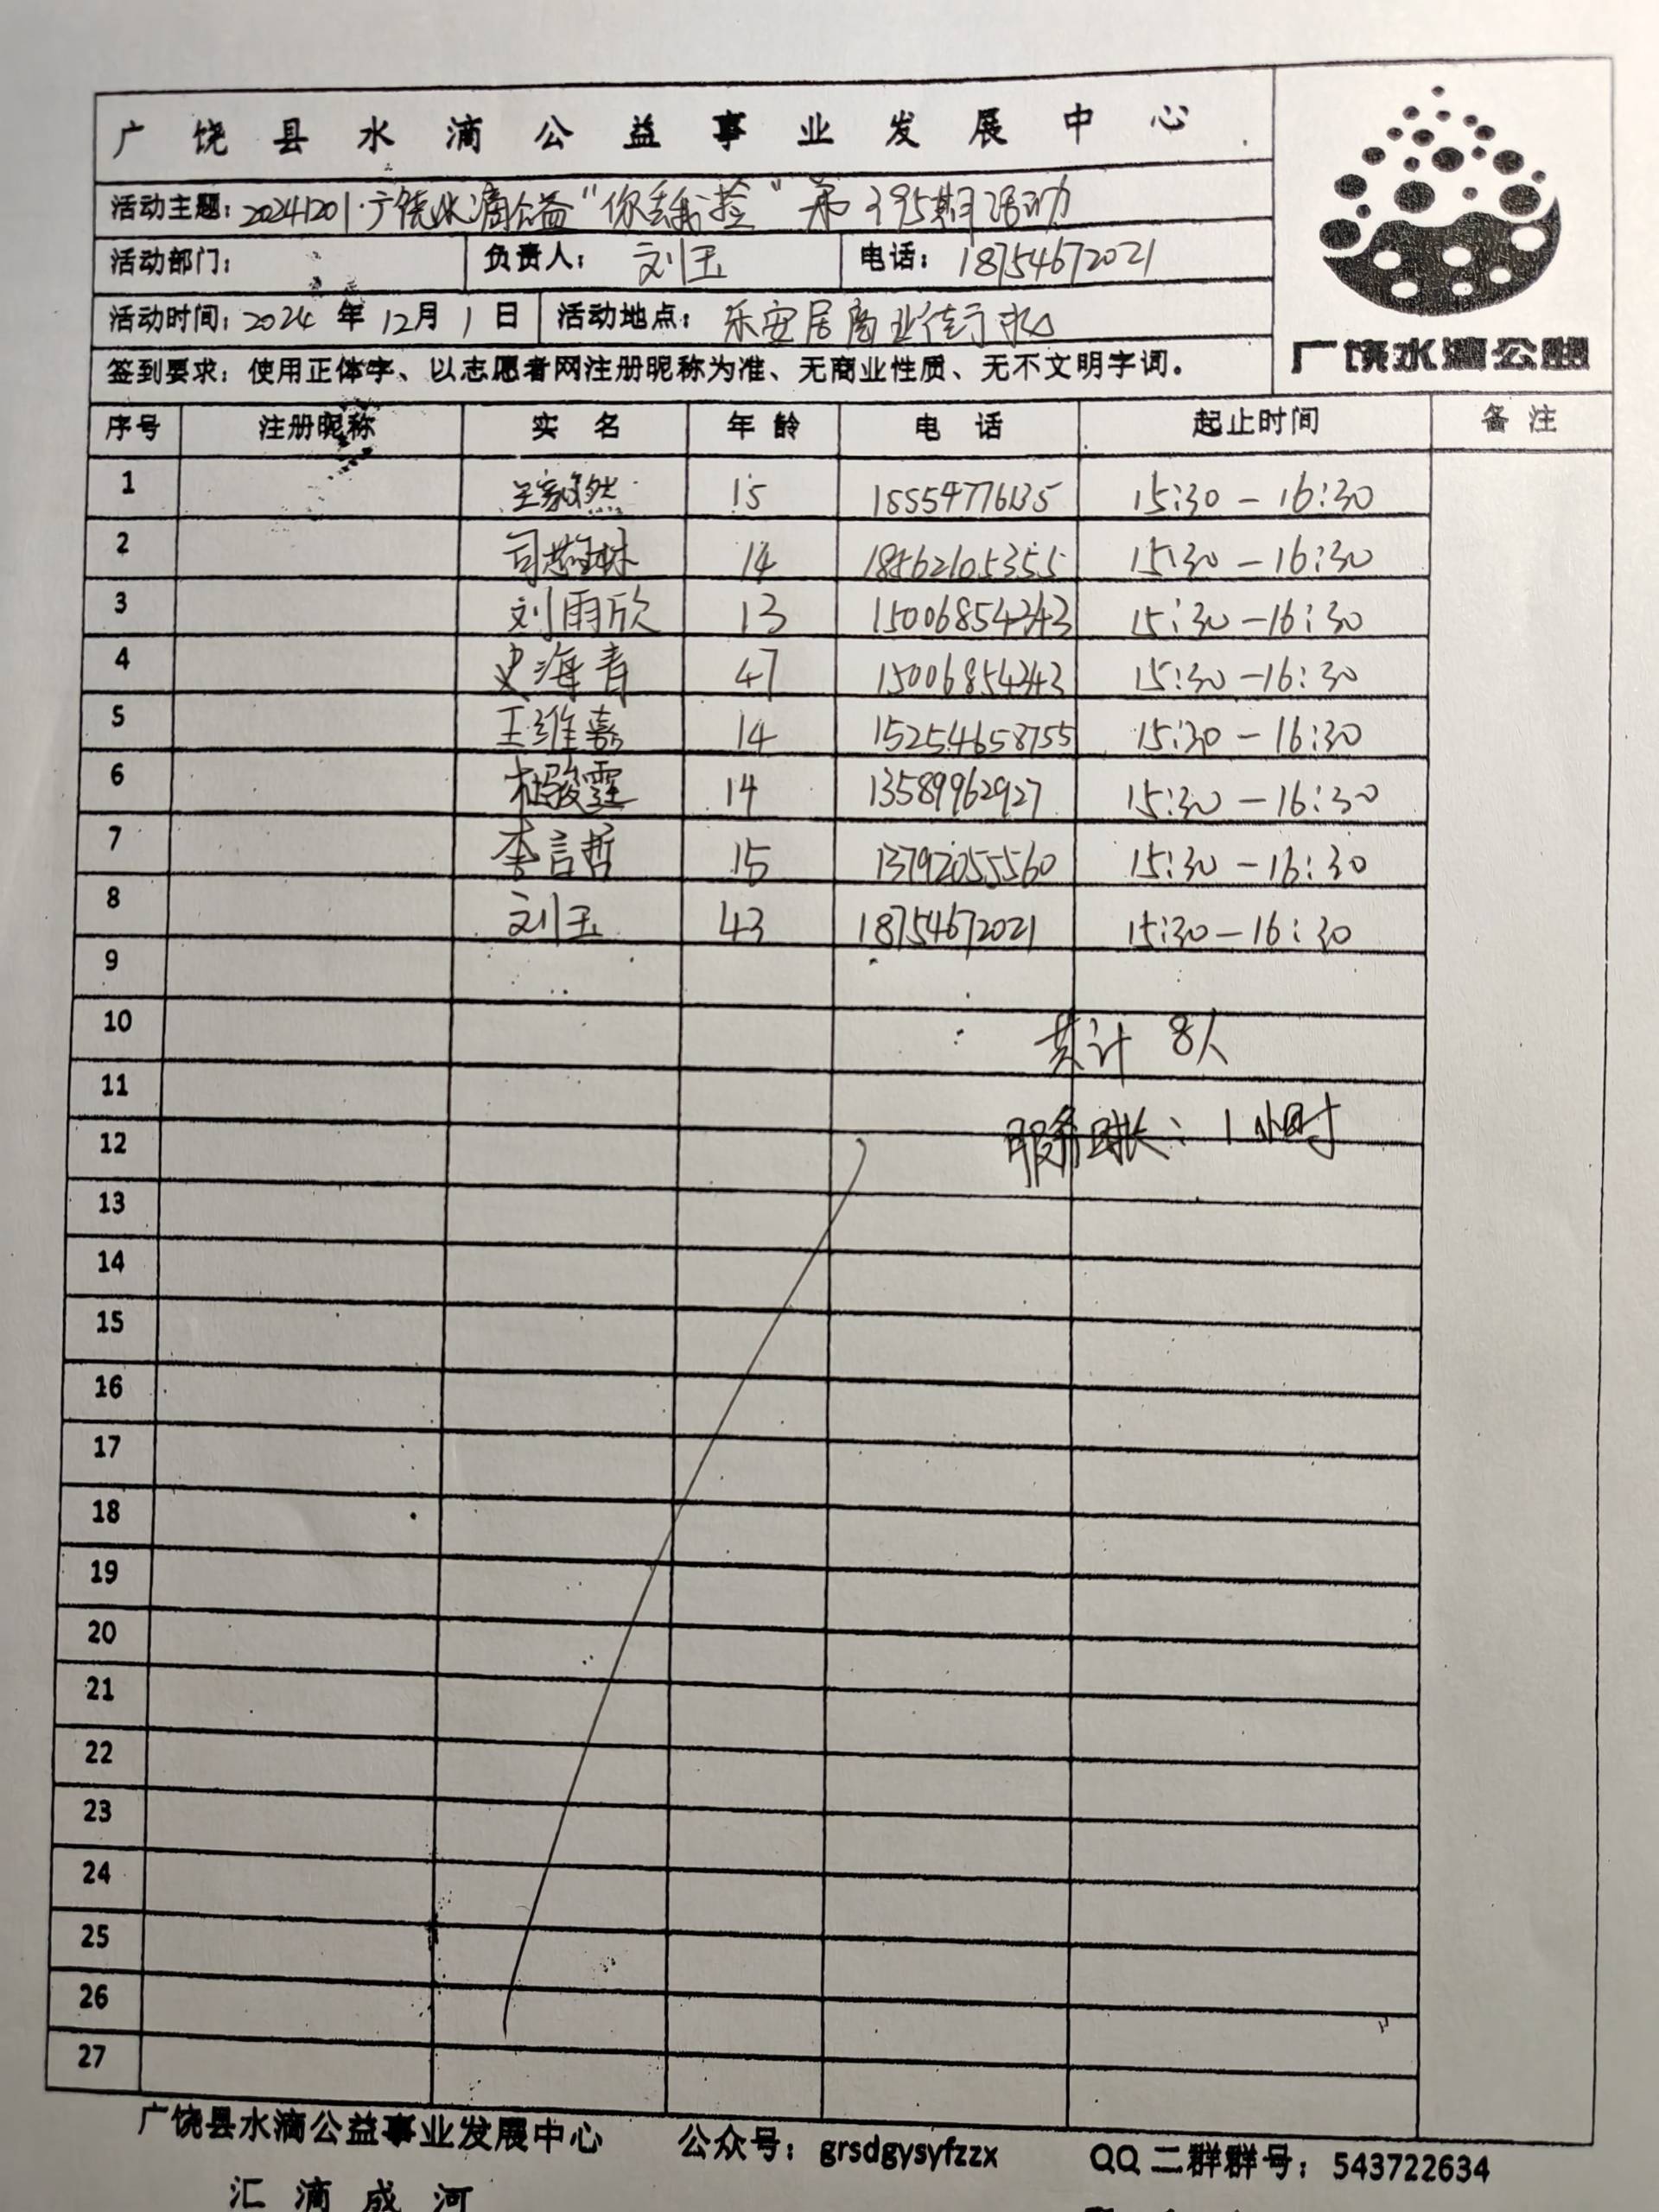 广饶县水滴公益事业发展中心
活动主题：20241201·广饶水滴公益“你丢我捡”第395期活动
活动部门： 负责人：刘玉 电话：18754672021
活动时间：2024年12月1日 活动地点：乐安居商业街
签到要求：使用正体字、以志愿者网注册昵称为准、无商业性质、无不文明字词。
广饶水滴公益
序号 注册昵称 实名 年龄 电话 起止时间 备注
1 然 15 15:30-16:30
2 司 14 18562105355 15:30-16:30
3 刘雨欣 13 15006854243 15:30-16:30
4 史海青 47 15006854243 15:30-16:30
5 王维嘉 14 15254658755 15:30-16:30
6 杜骏霆 14 13589962927 15:30-16:30
7 李言哲 15 13792055560 15:30-16:30
8 刘玉 43 18754672021 15:30-16:30
9
10 共计 8人
11
12 服务时长：1小时
13
14
15
16
17
18
19
20
21
22
23
24
25
26
27
广饶县水滴公益事业发展中心 公众号：grsdgysyfzzx QQ二群群号：543722634
汇滴成河